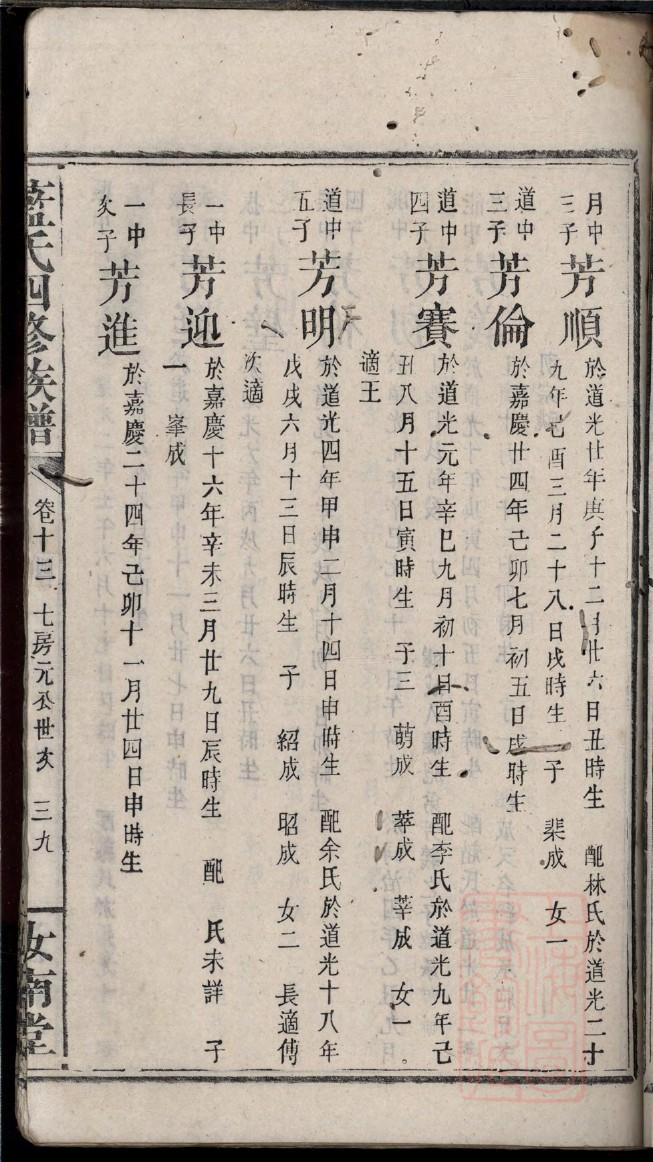 月中三子
芳順
於道光廿年庚子十二月廿六日丑時生 配林氏於道光二十
九年己酉三月二十八日戌時生 子 棐成 女一
道中三子
芳倫
於嘉慶廿四年己卯七月初五日戌時生
道中四子
芳賽
於道光元年辛巳九月初十日酉時生 配李氏於道光九年己
丑八月十五日寅時生 子三 萌成 萃成 莘成 女一
適王
道中五子
芳明
於道光四年甲申二月十四日申時生 配余氏於道光十八年
戊戌六月十三日辰時生 子 紹成 昭成 女二 長適傅
次適
一中長子
芳迎
於嘉慶十六年辛未三月廿九日辰時生 配 氏未詳 子
一 峯成
一中次子
芳進
於嘉慶二十四年己卯十一月廿四日申時生
藍氏四修族譜
卷十三 七房元公世次 三九
汝南堂